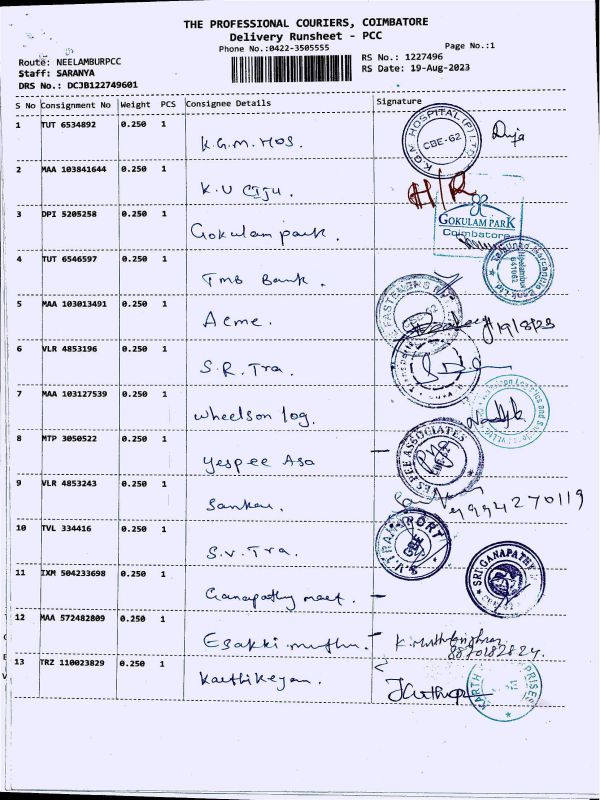 THE PROFESSIONAL COURIERS, COIMBATORE
Delivery Runsheet - PCC
Phone No.:0422-3505555
Page No.:1
Route: NEELAMBURPCC
RS No.: 1227496
Staff: SARANYA
RS Date: 19-Aug-2023
DRS No.: DCJB122749601
S No Consignment No Weight PCS Consignee Details Signature
1 TUT 6534892 0.250 1 K.G.M. HOS.
K.G.M. HOSPITAL (P) LTD. CBE-62
2 MAA 103841644 0.250 1 K.V
H/R
3 DPI 5205258 0.250 1 Gokulam park.
GOKULAM PARK
Coimbatore
4 TUT 6546597 0.250 1 TMB Bank.
Tamilnad Mercantile Bank Ltd
641062
5 MAA 103013491 0.250 1 Acme.
FASTENERS
19/8/23
6 VLR 4853196 0.250 1 S.R. Tra.
7 MAA 103127539 0.250 1 wheelson log.
8 MTP 3050522 0.250 1 yespee Aso
YES PEE ASSOCIATES
9 VLR 4853243 0.250 1
9994270119
10 TVL 334416 0.250 1 S.V. Tra.
S.V. TRANSPORT CBE
11 IXM 504233698 0.250 1 Ganapathy meet.
SRI GANAPATHY
12 MAA 572482809 0.250 1 Esakki muthu.
8870182824
13 TRZ 110023829 0.250 1 Karthikeyan.
KARTH PRISES